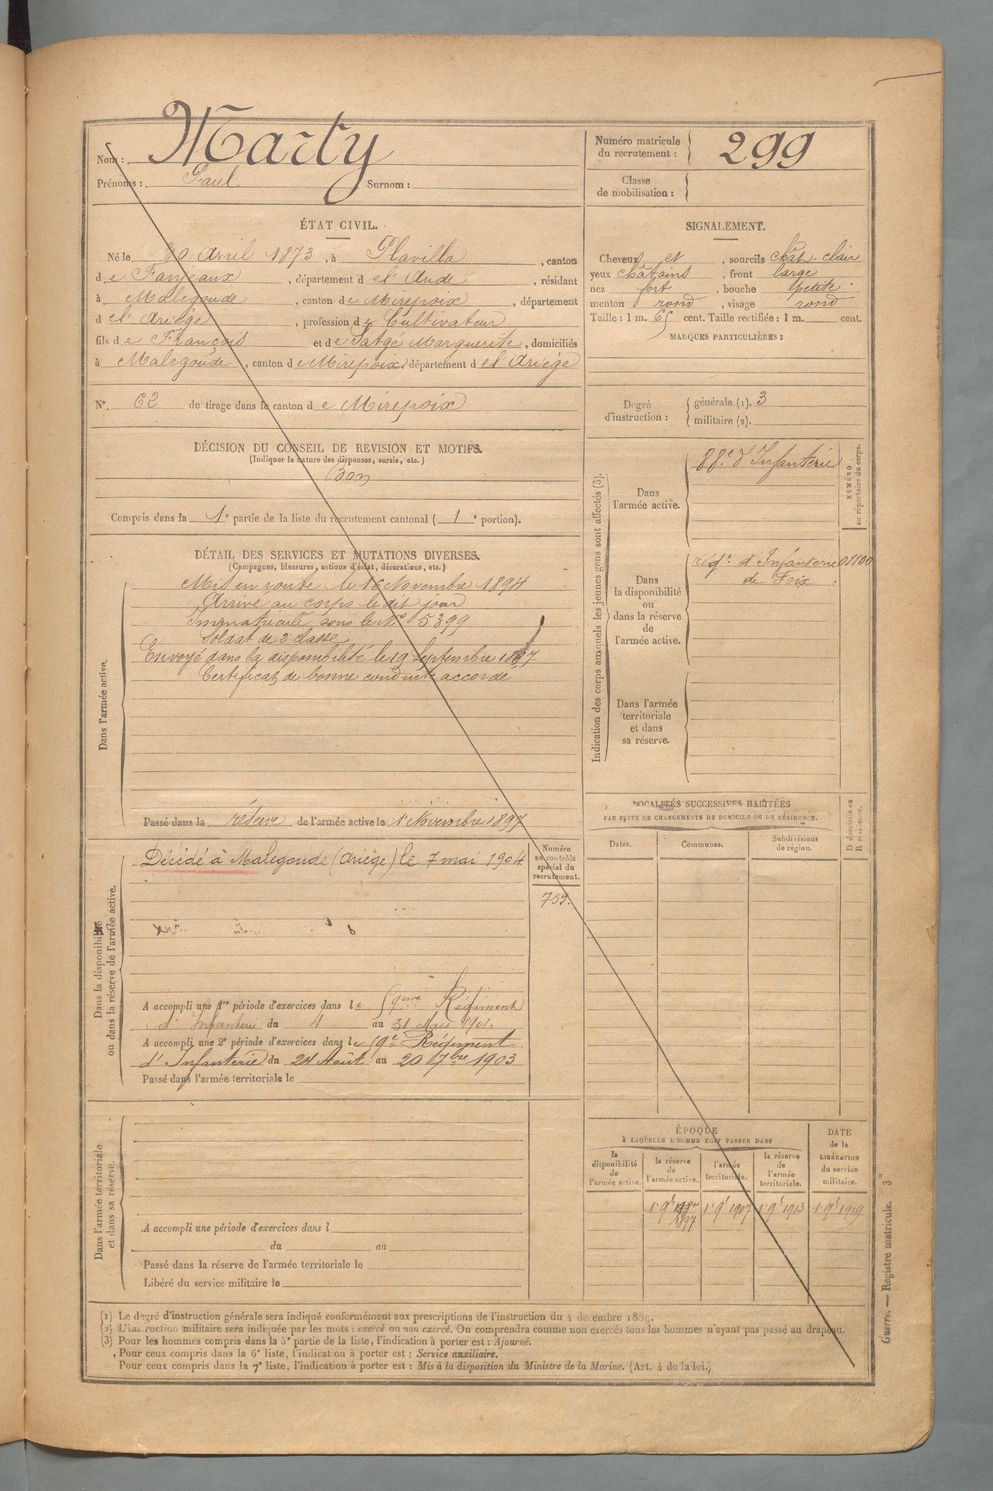 Nom : Marty
Prénoms : Paul Surnom :
Numéro matricule du recrutement : 299
Classe de mobilisation :
ÉTAT CIVIL.
Né le 30 avril 1873, à Plavilla, canton
de Fanjeaux, département de l'Aude, résidant
à Malegoude, canton de Mirepoix, département
de l'Ariège, profession de Cultivateur
fils de François et de Satgé Marguerite, domiciliés
à Malegoude, canton de Mirepoix, département de l'Ariège
N° 62 de tirage dans le canton de Mirepoix
SIGNALEMENT.
Cheveux et, sourcils chât. clair
yeux châtains, front large
nez fort, bouche petite
menton rond, visage rond
Taille : 1 m. 65 cent. Taille rectifiée : 1 m. cent.
MARQUES PARTICULIÈRES :
Degré d'instruction : générale (1). 3
militaire (2).
DÉCISION DU CONSEIL DE REVISION ET MOTIFS.
(Indiquer la nature des dispenses, sursis, etc.)
Bon
Compris dans la 1e partie de la liste du recrutement cantonal (1e portion).
DÉTAIL DES SERVICES ET MUTATIONS DIVERSES.
(Campagnes, blessures, actions d'éclat, décorations, etc.)
Dans l'armée active.
Mis en route le 16 Novembre 1894
Arrivé au corps le dit jour
Immatriculé sous le N° 5399
Soldat de 2e classe
Envoyé dans la disponibilité le 19 Septembre 1897
Certificat de bonne conduite accordé
Passé dans la réserve de l'armée active le 1 Novembre 1897
Dans la disponibilité
ou dans la réserve de l'armée active.
Décédé à Malegoude (Ariège) le 7 mai 1904
Numéro
au contrôle
spécial du
recrutement.
759.
A accompli une 1re période d'exercices dans le 59eme Régiment
d'Infanterie du 4 au 31 Mai 1901.
A accompli une 2e période d'exercices dans le 59e Régiment
d'Infanterie du 24 Août au 20 7bre 1903
Passé dans l'armée territoriale le
Dans l'armée territoriale
et dans sa réserve.
A accompli une période d'exercices dans l
du au
Passé dans la réserve de l'armée territoriale le
Libéré du service militaire le
Indication des corps auxquels les jeunes gens sont affectés (3).
Dans
l'armée active.
88e d'Infanterie
NUMÉRO
au répertoire du corps.
Dans
la disponibilité
ou
dans la réserve
de
l'armée active.
régt. d'Infanterie 01100
de Foix
Dans l'armée
territoriale
et dans
sa réserve.
LOCALITÉS SUCCESSIVES HABITÉES
PAR SUITE DE CHANGEMENTS DE DOMICILE OU DE RÉSIDENCE.
Dates. Communes. Subdivisions
de région.
D domicile ou
R résidence.
ÉPOQUE
À LAQUELLE L'HOMME DOIT PASSER DANS
la
disponibilité
de
l'armée active.
la réserve
de
l'armée active.
l'armée
territoriale.
la réserve
de
l'armée
territoriale.
DATE
de la
LIBÉRATION
du service
militaire.
1er 9bre 1897 1er 9bre 1907 1er 9bre 1913 1er 9bre 1919
(1) Le degré d'instruction générale sera indiqué conformément aux prescriptions de l'instruction du 4 décembre 1889.
(2) L'instruction militaire sera indiquée par les mots : exercé ou non exercé. On comprendra comme non exercés tous les hommes n'ayant pas passé au drapeau.
(3) Pour les hommes compris dans la 5e partie de la liste, l'indication à porter est : Ajourné.
Pour ceux compris dans la 6e liste, l'indication à porter est : Service auxiliaire.
Pour ceux compris dans la 7e liste, l'indication à porter est : Mis à la disposition du Ministre de la Marine. (Art. 4 de la loi.)
Guerre. — Registre matricule. 3